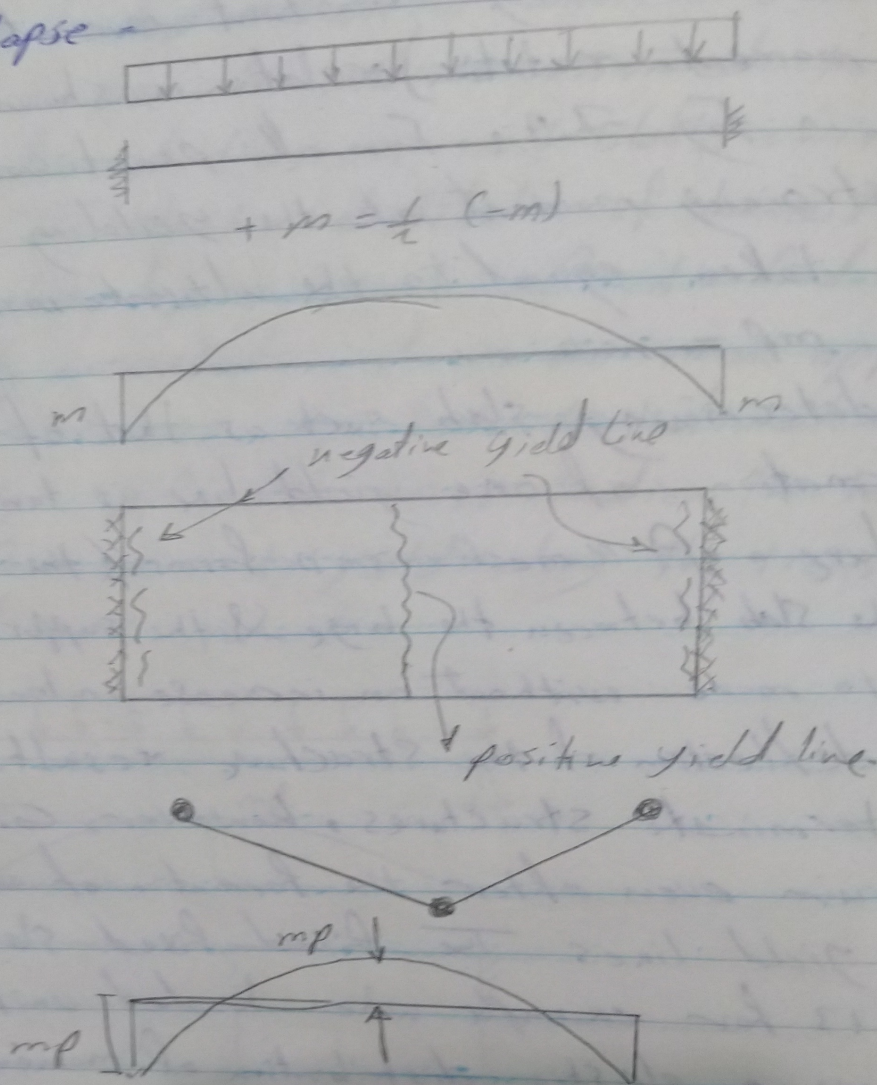 apse -
+ m = 1/2 (-m)
m
m
negative yield line
positive yield line
mp
mp